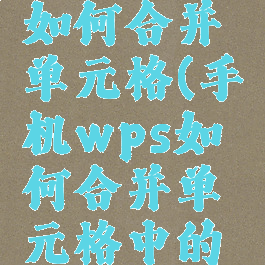 如何合并
单元格(手
机wps如
何合并单
元格中的